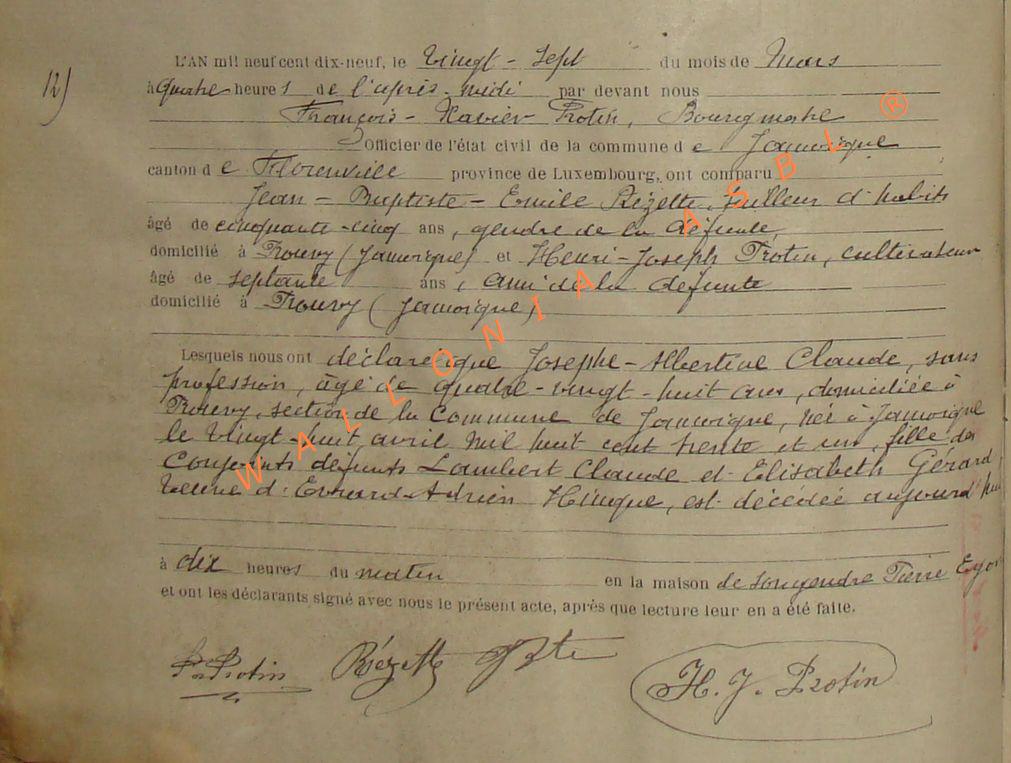 12)
L'AN mil neuf cent dix-neuf, le vingt-sept du mois de Mars
à quatre heures de l'après-midi par devant nous
François-Xavier Protin, Bourgmestre
Officier de l'état civil de la commune de Jamoigne
canton de Florenville province de Luxembourg, ont comparu
Jean-Baptiste-Emile Rézette, tailleur d'habits
âgé de cinquante-cinq ans, gendre de la défunte,
domicilié à Prouvy (Jamoigne) et Henri-Joseph Protin, cultivateur
âgé de septante ans, ami de la défunte
domicilié à Prouvy (Jamoigne)
Lesquels nous ont déclaré que Josephe-Albertine Claude, sans
profession, âgé de quatre-vingt-huit ans, domiciliée à
Prouvy, section de la Commune de Jamoigne, née à Jamoigne
le vingt-huit avril mil huit cent trente et un, fille des
conjoints défunts Lambert Claude et Elisabeth Gérard,
veuve d'Evrard-Adrien Hinque, est décédée aujourd'hui
à dix heures du matin en la maison de son gendre Pierre
et ont les déclarants signé avec nous le présent acte, après que lecture leur en a été faite.
Protin Rézette H. J. Protin
WALLONIA ASBL ®